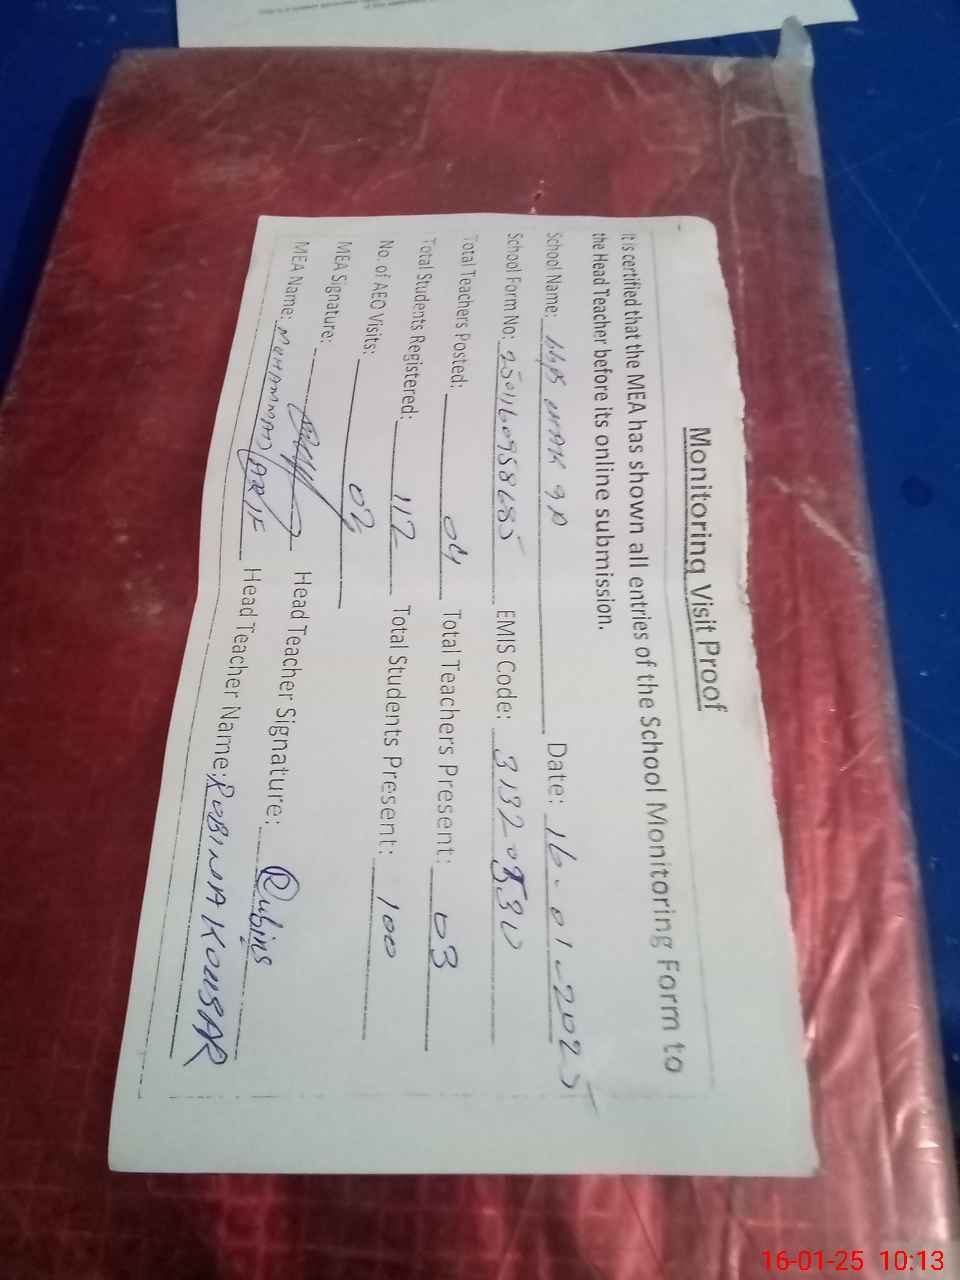 Monitoring Visit Proof
It is certified that the MEA has shown all entries of the School Monitoring Form to
the Head Teacher before its online submission.
School Name: Date: 16-01-2025
School Form No: EMIS Code:
Total Teachers Posted: 04 Total Teachers Present: 03
Total Students Registered: 112 Total Students Present: 100
No. of AEO Visits:
MEA Signature: Head Teacher Signature: Rubins
MEA Name: MUHAMMAD ARIF Head Teacher Name: ROBINA KOUSAR
16-01-25 10:13